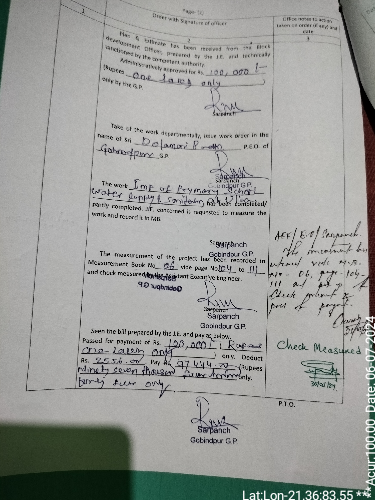 Page: 10
Order with Signature of officer
Office notes to action
taken on order (if any) and
date
1
2
3
Plan & Estimate has been received from the Block
development Officer, prepared by the J.E. and technically
sanctioned by the competent authority.
Administratively approved for Rs. 100,000/-
(Rupees One Lakh only )
only by the G.P.
Sarpanch
Take of the work departmentally, issue work order in the
name of Sri P.E.O of
G.P.
Sarpanch
Gobindpur G.P.
The work Imp of Primary School
water supply & sanitary has been completed/
partly completed. J.E. concerned is requested to measure the
work and record it in MB.
Gobindpur G.P.
The measurement of the project has been recorded in
Measurement Book No. 06 vide page No 104 to 111
and check measured by the Assistant Executive Engineer.
Sarpanch
Gobindpur G.P.
AEE/ P.E.O/Sarpanch
The measurement has
entered vide M.B.
no - 06, page - 104-
111
Check
Seen the bill prepared by the J.E. and pay as below.
Passed for payment of Rs. 100,000/- ( Rupees
one Lakh only ) only. Deduct
Rs. 2556.00 Pay Rs. 97444.00 (Rupees
ninety seven thousand four hundred
forty four only
Check Measured
Sarpanch
Gobindpur G.P.
P.T.O.
Lat:Lon-21.36:83.55 ** Acur:100.00 Date:06-07-2024